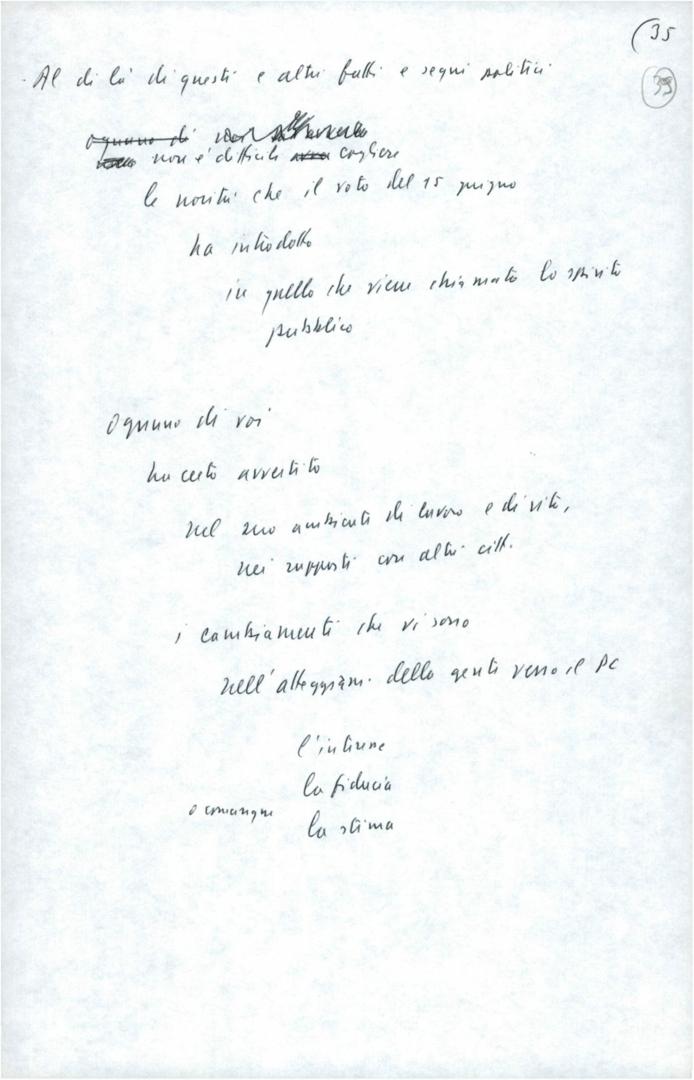 (35
35
Al di là di questi e altri fatti e segni politici
Ognuno di voi
non è difficile cogliere
le novità che il voto del 15 giugno
ha introdotto
in quello che viene chiamato lo spirito
pubblico
Ognuno di voi
ha certo avvertito
nel suo ambiente di lavoro e di vita,
nei rapporti con altri citt.
i cambiamenti che vi sono
nell'atteggiam. della gente verso il PC
la fiducia
o comunque
la stima